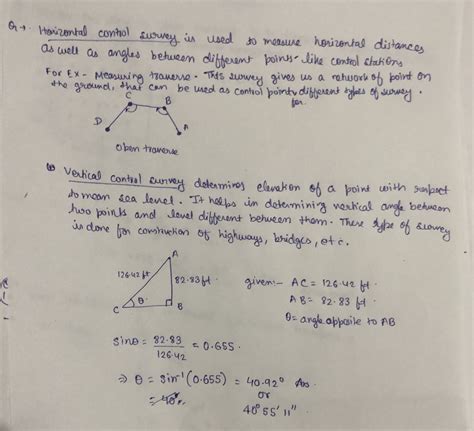 Q → Horizontal control survey is used to measure horizontal distances
as well as angles between different points - like control stations
For Ex - Measuring traverse. This survey gives us a network of point on
the ground, that can be used as control points different types of survey.
for
C
B
D
A
open traverse
(b) Vertical control survey determines elevation of a point with respect
to mean sea level. It helps in determining vertical angle between
two points and level different between them. These type of survey
is done for construction of highways, bridges, etc.
A
126.42 ft
82.83 ft.
C
θ
B
given:- AC = 126.42 ft.
AB = 82.83 ft.
θ = angle opposite to AB
sinθ = 82.83 / 126.42 = 0.655.
⇒ θ = sin⁻¹(0.655) = 40.92° Ans
or
40° 55' 11"